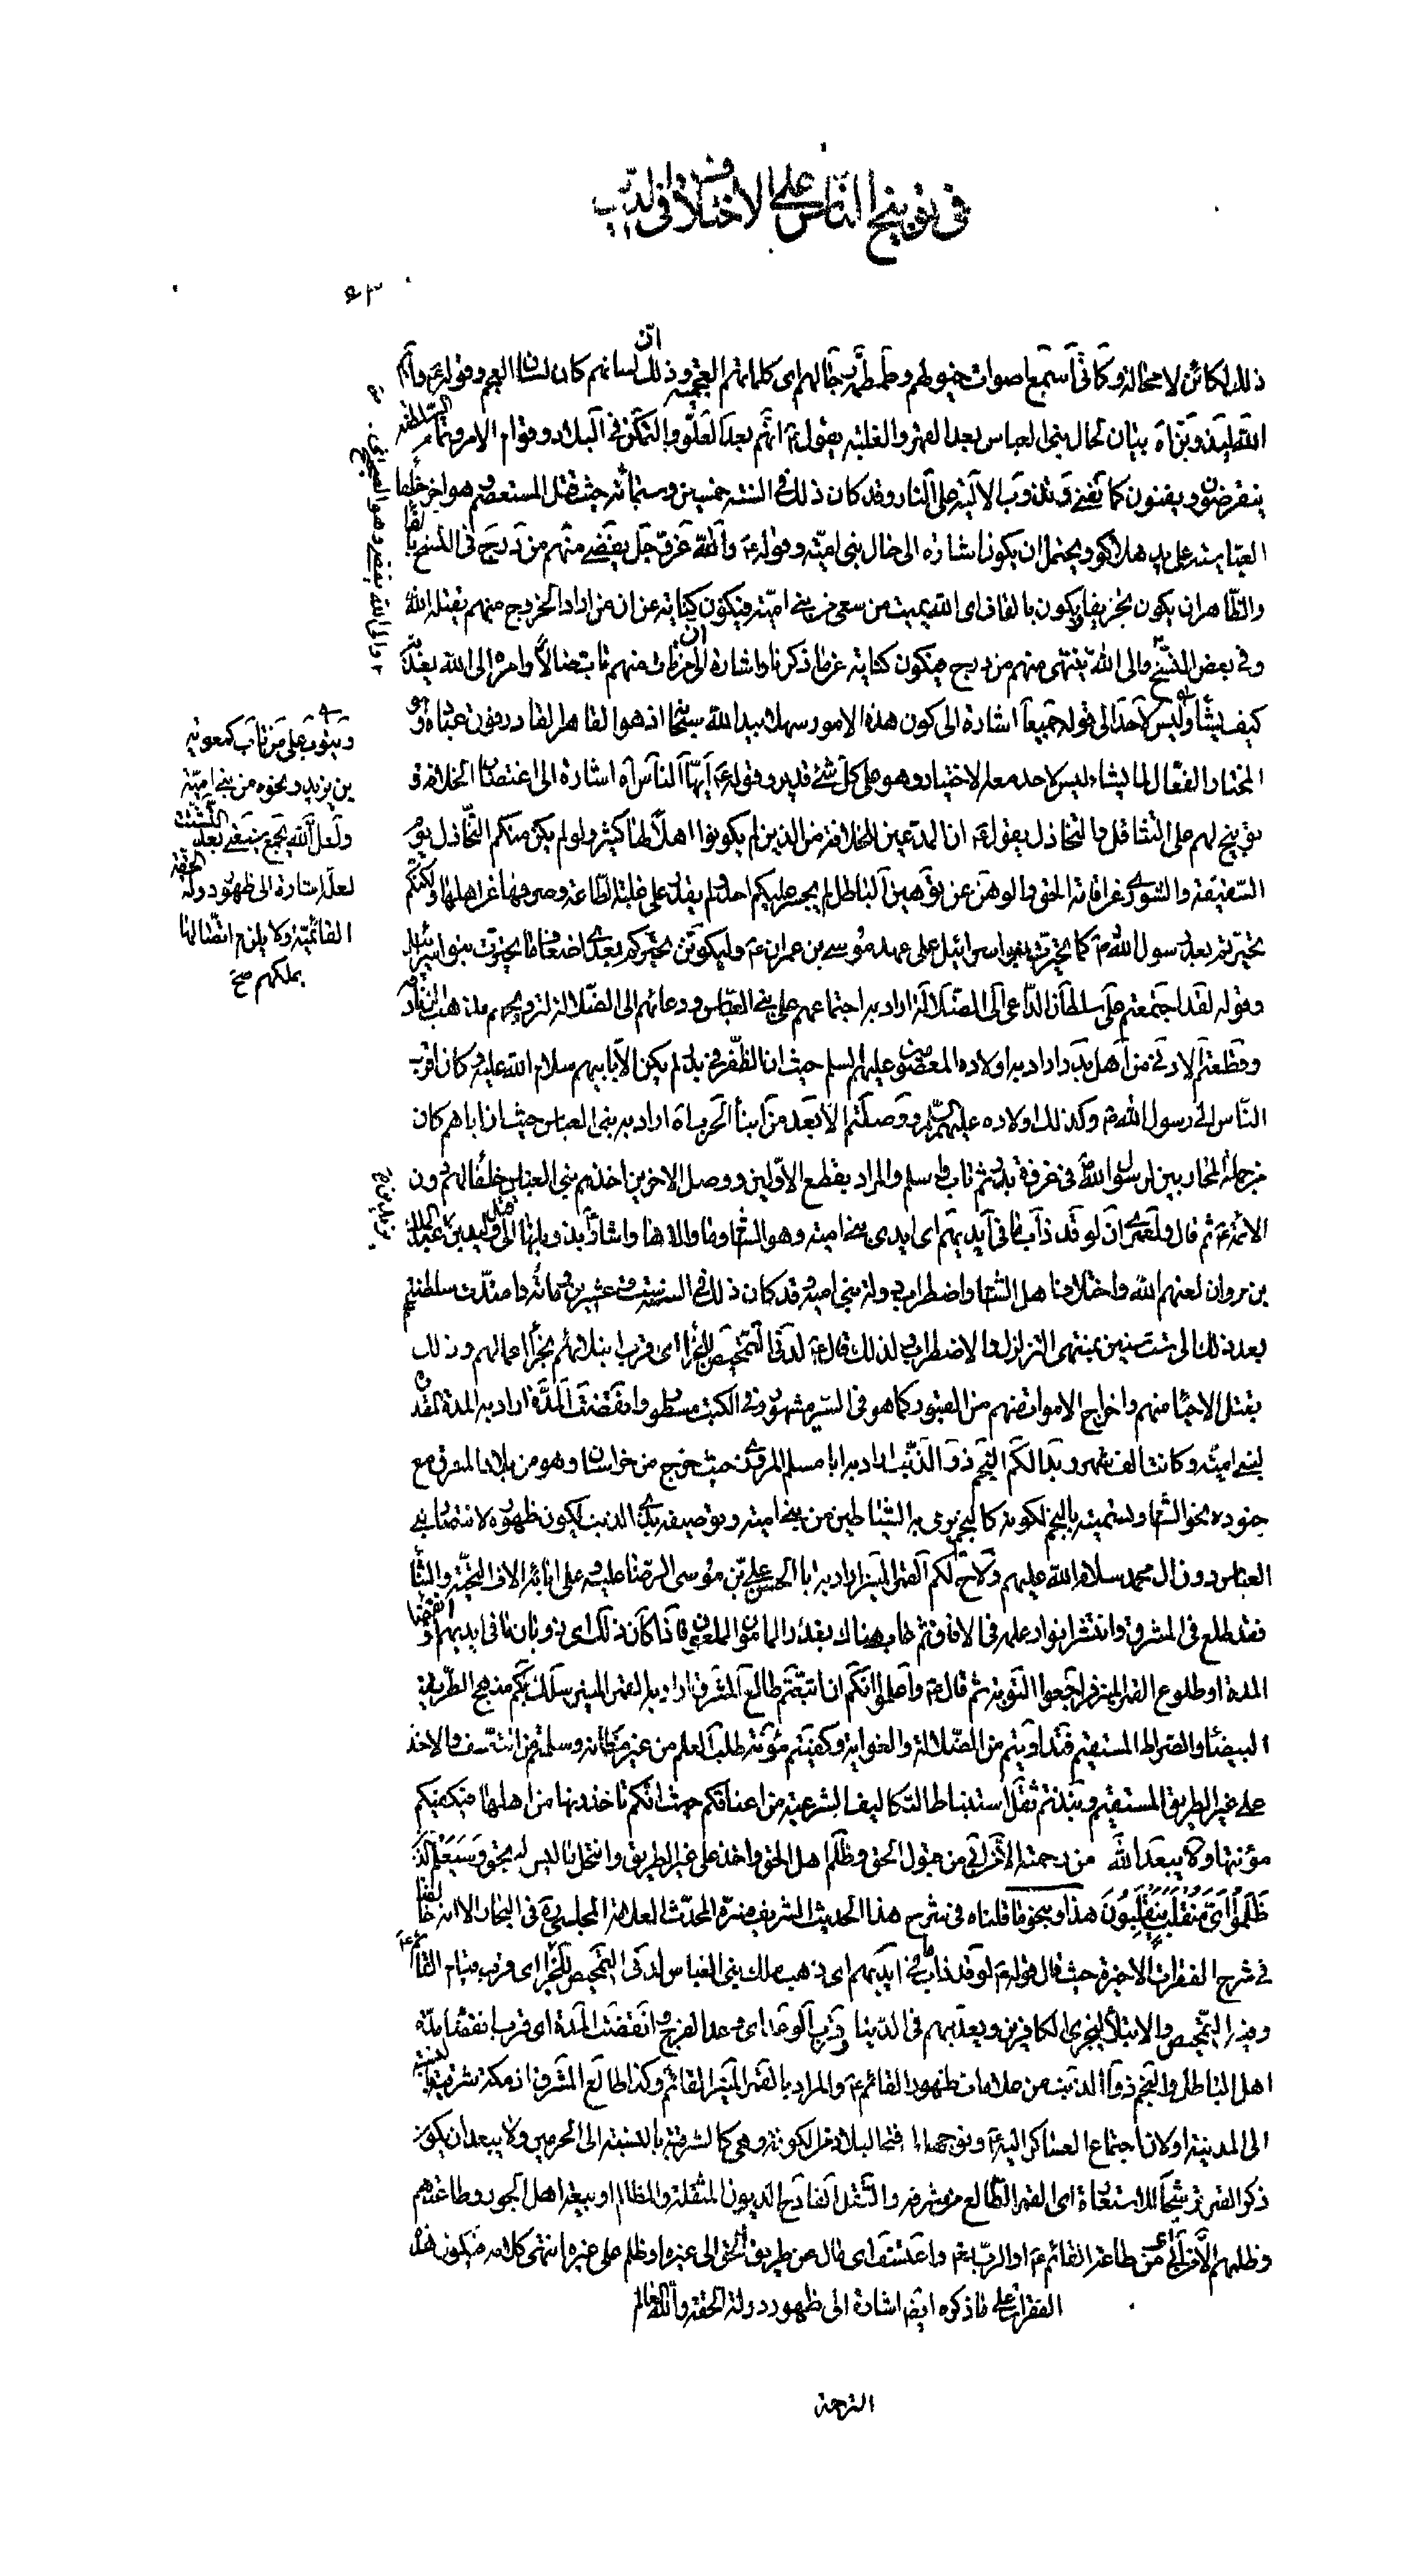 في توبيخ الناس على الاختلاف في الدين
٤٣
ذلك لكائن لا محالة وكأني أسمع اصوات خيولهم وطمطمة رجالهم اى كلماتهم العجمية وذلك ان لسانهم كان لسان العجم وقوله ع وأيم
الله ليذوبن اه بيان لحال بنى العباس بعد القهر والغلبة يقول ع انهم بعد العلو والتمكن في البلاد وقوام الامر وتمام السلطنة
ينقرضون ويفنون كما يفنى ويذوب الالية على النار وقد كان ذلك في السنة خمسين وستمائة حيث قتل المستعصم وهو اخر خلفاء
العباسية على يد هلاكو ويحتمل ان يكون اشارة الى حال بنى امية وقوله ع والله عز وجل يفضى منهم من درج في النسخ بالفاء
والظاهر ان يكون تحريفا ويكون بالقاف اى الله يميت من سعى من بنى امية فيكون كناية عن ان من اراد الخروج منهم يقتله الله
وفي بعض النسخ والى الله ينتهى منهم من درج فيكون كناية عما ذكرنا واشارة الى ان من مات منهم مات ضالا وامره الى الله يعذبه
كيف يشاء وليس لاحد الى قوله جميعا اشارة الى كون هذه الامور سهلة بيد الله سبحانه اذ هو القاهر القادر فوق عباده وهو
المختار الفعال لما يشاء ليس لاحد معه الاختيار وهو على كل شئ قدير وقوله ع أيها الناس اه اشارة الى اغتصاب الخلافة و
توبيخ لهم على التثاقل والتخاذل يقول ع ان المدعين للخلافة من الذين لم يكونوا اهلا لها كثير ولو لم يكن منكم التخاذل يوم
السقيفة والشورى عن اقامة الحق والوهن عن توهين الباطل لم يجسر عليكم احد ولم يقدر على قلبة الطاعة وصرفها عن اهلها ولكنكم
تحيرتم بعد رسول الله ص كما تحيرت بنو اسرائيل على عهد موسى بن عمران ع وليكونن تحيركم بعدى اضعاف ما تحيرت بنو اسرائيل
وقوله لقد اجتمعتم على سلطان الداعى الى الضلالة اراد به اجتماعهم على بنى العباس ودعائهم الى الضلالة لترويجهم مذاهب
وقطعتم الادنى من أهل بدر اراد به اولاده المعصومين عليهم السلم حيث ان الظفر في بدر لم يكن الا بأبيهم سلام الله عليه وكان اقرب
الناس الى رسول الله ص وكذلك اولاده عليهم السلم ووصلتم الابعد من ابناء الحرب اه اراد به بنى العباس حيث ان اباهم كان
من جملة المحاربين لرسول الله في غزوة بدر ثم تاب واسلم والمراد بقطع الاولين ووصل الاخرين اخذهم بنى العباس خلفاء لهم دون
الائمة ع ثم قال ولعمرى ان لو قد ذاب ما في أيديهم اى ايدى بنى امية وهو الشام وما والاها واشار بذوبانها الى قتل وليد بن عبد الملك
بن مروان لعنهم الله واختلاف اهل الشام واضطراب دولة بنى امية وقد كان ذلك في السنة ست وعشرين ومائة وامتدت سلطنتهم
بعد ذلك الى ست سنين بمنتهى التزلزل والاضطراب ولذلك قال ع لدنى التمحيص للجزاء اى قرب ابتلائهم بجزاء اعمالهم وذلك
بقتل الاحياء منهم واخراج الاموات منهم من القبور كما هو في السير مشهور وفى الكتب مسطور وانقضت المدة اراد به المدة المقدرة
لبنى امية وكانت الف شهر وبدا لكم النجم ذو الذنب اراد به ابا مسلم المروزى حيث خرج من خراسان وهو من بلاد المشرق مع
جنوده نحو الشام وتسميته بالنجم لكونه كالنجم يرمى به الشياطين من بنى امية وتوصيفه بذى الذنب لكون ظهوره لانتصار بنى
العباس دون ال محمد سلام الله عليهم ولاح لكم القمر المنير اراد به ابا الحسن على بن موسى الرضا عليه وعلى ابائه الاف التحية والثناء
فقد طلع في المشرق وانتشر انوار علمه في الافاق ثم غاب هناك بغدر المامون الملعون فاذا كان ذلك اى ذوبان ما في ايديهم وانقضاء
المدة او طلوع القمر المنير فراجعوا التوبة ثم قال ع واعلموا انكم ان اتبعتم طالع المشرق اراد به القمر المنير سلك بكم منهج الطريقة
البيضاء والصراط المستقيم فتداويتم من الضلالة والغواية وكفيتم مؤنة طلب العلم من غير مظانه وسلمتم من التعسف والاخذ
على غير الطريق المستقيم ونبذتم ثقل استنباط التكاليف الشرعية من اعناقكم حيث انكم تاخذونها من اهلها فيكفيكم
مؤنتها ولا يبعد الله من رحمته الا من ابى من قبول الحق وظلم اهل الحق واخذ على غير الطريق وانتحل ما ليس له بحق وسيعلم الذين
ظلموا أى منقلب ينقلبون هذا وبنحو ما قلناه في شرح هذا الحديث الشريف فسره المحدث العلامة المجلسى ره في البحار الا انه خالفنا
في شرح الفقرات الاخيرة حيث قال قوله ع لو قد ذاب ما في ايديهم اى ذهب ملك بنى العباس لدنى التمحيص للجزاء اى قرب قيام القائم ع
وفيه التمحيص والابتلاء ليجزى الكافرين ويعذبهم في الدنيا وقرب الوعد اى وعد الفرج وانقضت المدة اى قرب انقضاء مدة
اهل الباطل والنجم ذو الذنب من علامات ظهور القائم ع والمراد بالقمر المنير القائم وكذا طالع المشرق اذ مكة شرقية بالنسبة
الى المدينة او لان اجتماع العساكر اليه ع وتوجهه الى فتح البلاد من الكوفة وهى كالشرقية بالنسبة الى الحرمين ولا يبعد ان يكون
ذكر القمر ترشيحا للاستعارة اى القمر الطالع من مشرقه والثقل الفادح الديون المثقلة والمظالم او بيعة اهل الجور وطاعتهم
وظلمهم الا من ابى اى عن طاعة القائم ع او الرب تعالى واعتسف اى مال عن طريق الحق الى غيره او ظلم على غيره انتهى كلامه فيكون هذه
الفقرات على ما ذكره ايضا اشارة الى ظهور دولة الحقة والله العالم
الترجمة
ويتوب على من تاب كمعوية
بن يزيد ونحوه من بنى امية
ولعل الله يجمع شيعتى بعد التشتت
لعله اشارة الى ظهور دولة الحقة
القائمية ولا يلزم اتصالها
بملكهم صح